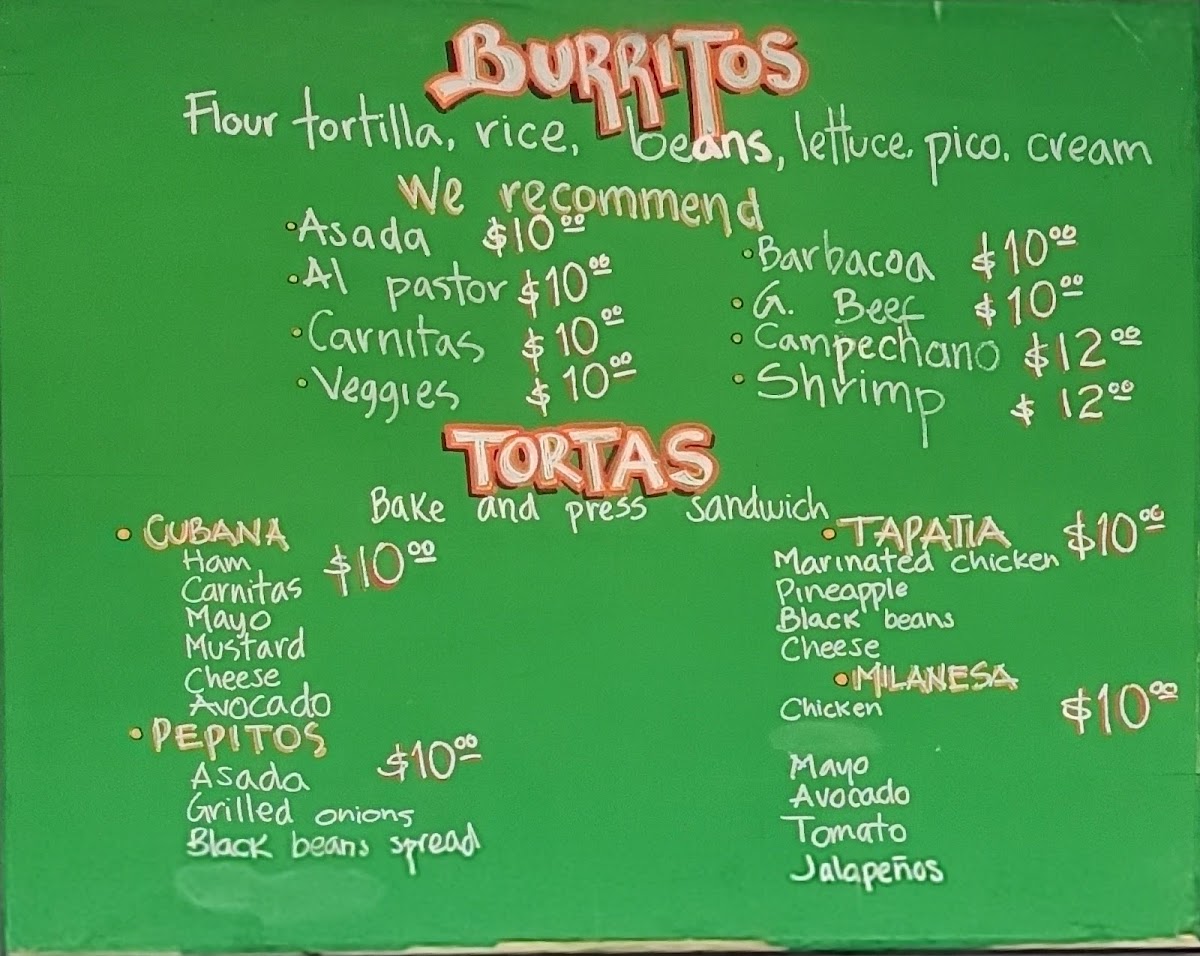 BURRITOS
Flour tortilla, rice, beans, lettuce. pico. cream
We recommend
• Asada $10.00
• Al pastor $10.00
• Carnitas $10.00
• Veggies $10.00
• Barbacoa $10.00
• G. Beef $10.00
• Campechano $12.00
• Shrimp $12.00
TORTAS
Bake and press sandwich
• CUBANA $10.00
Ham
Carnitas
Mayo
Mustard
Cheese
Avocado
• PEPITOS $10.00
Asada
Grilled onions
Black beans spread
• TAPATIA $10.00
Marinated chicken
Pineapple
Black beans
Cheese
• MILANESA $10.00
Chicken
Mayo
Avocado
Tomato
Jalapeños